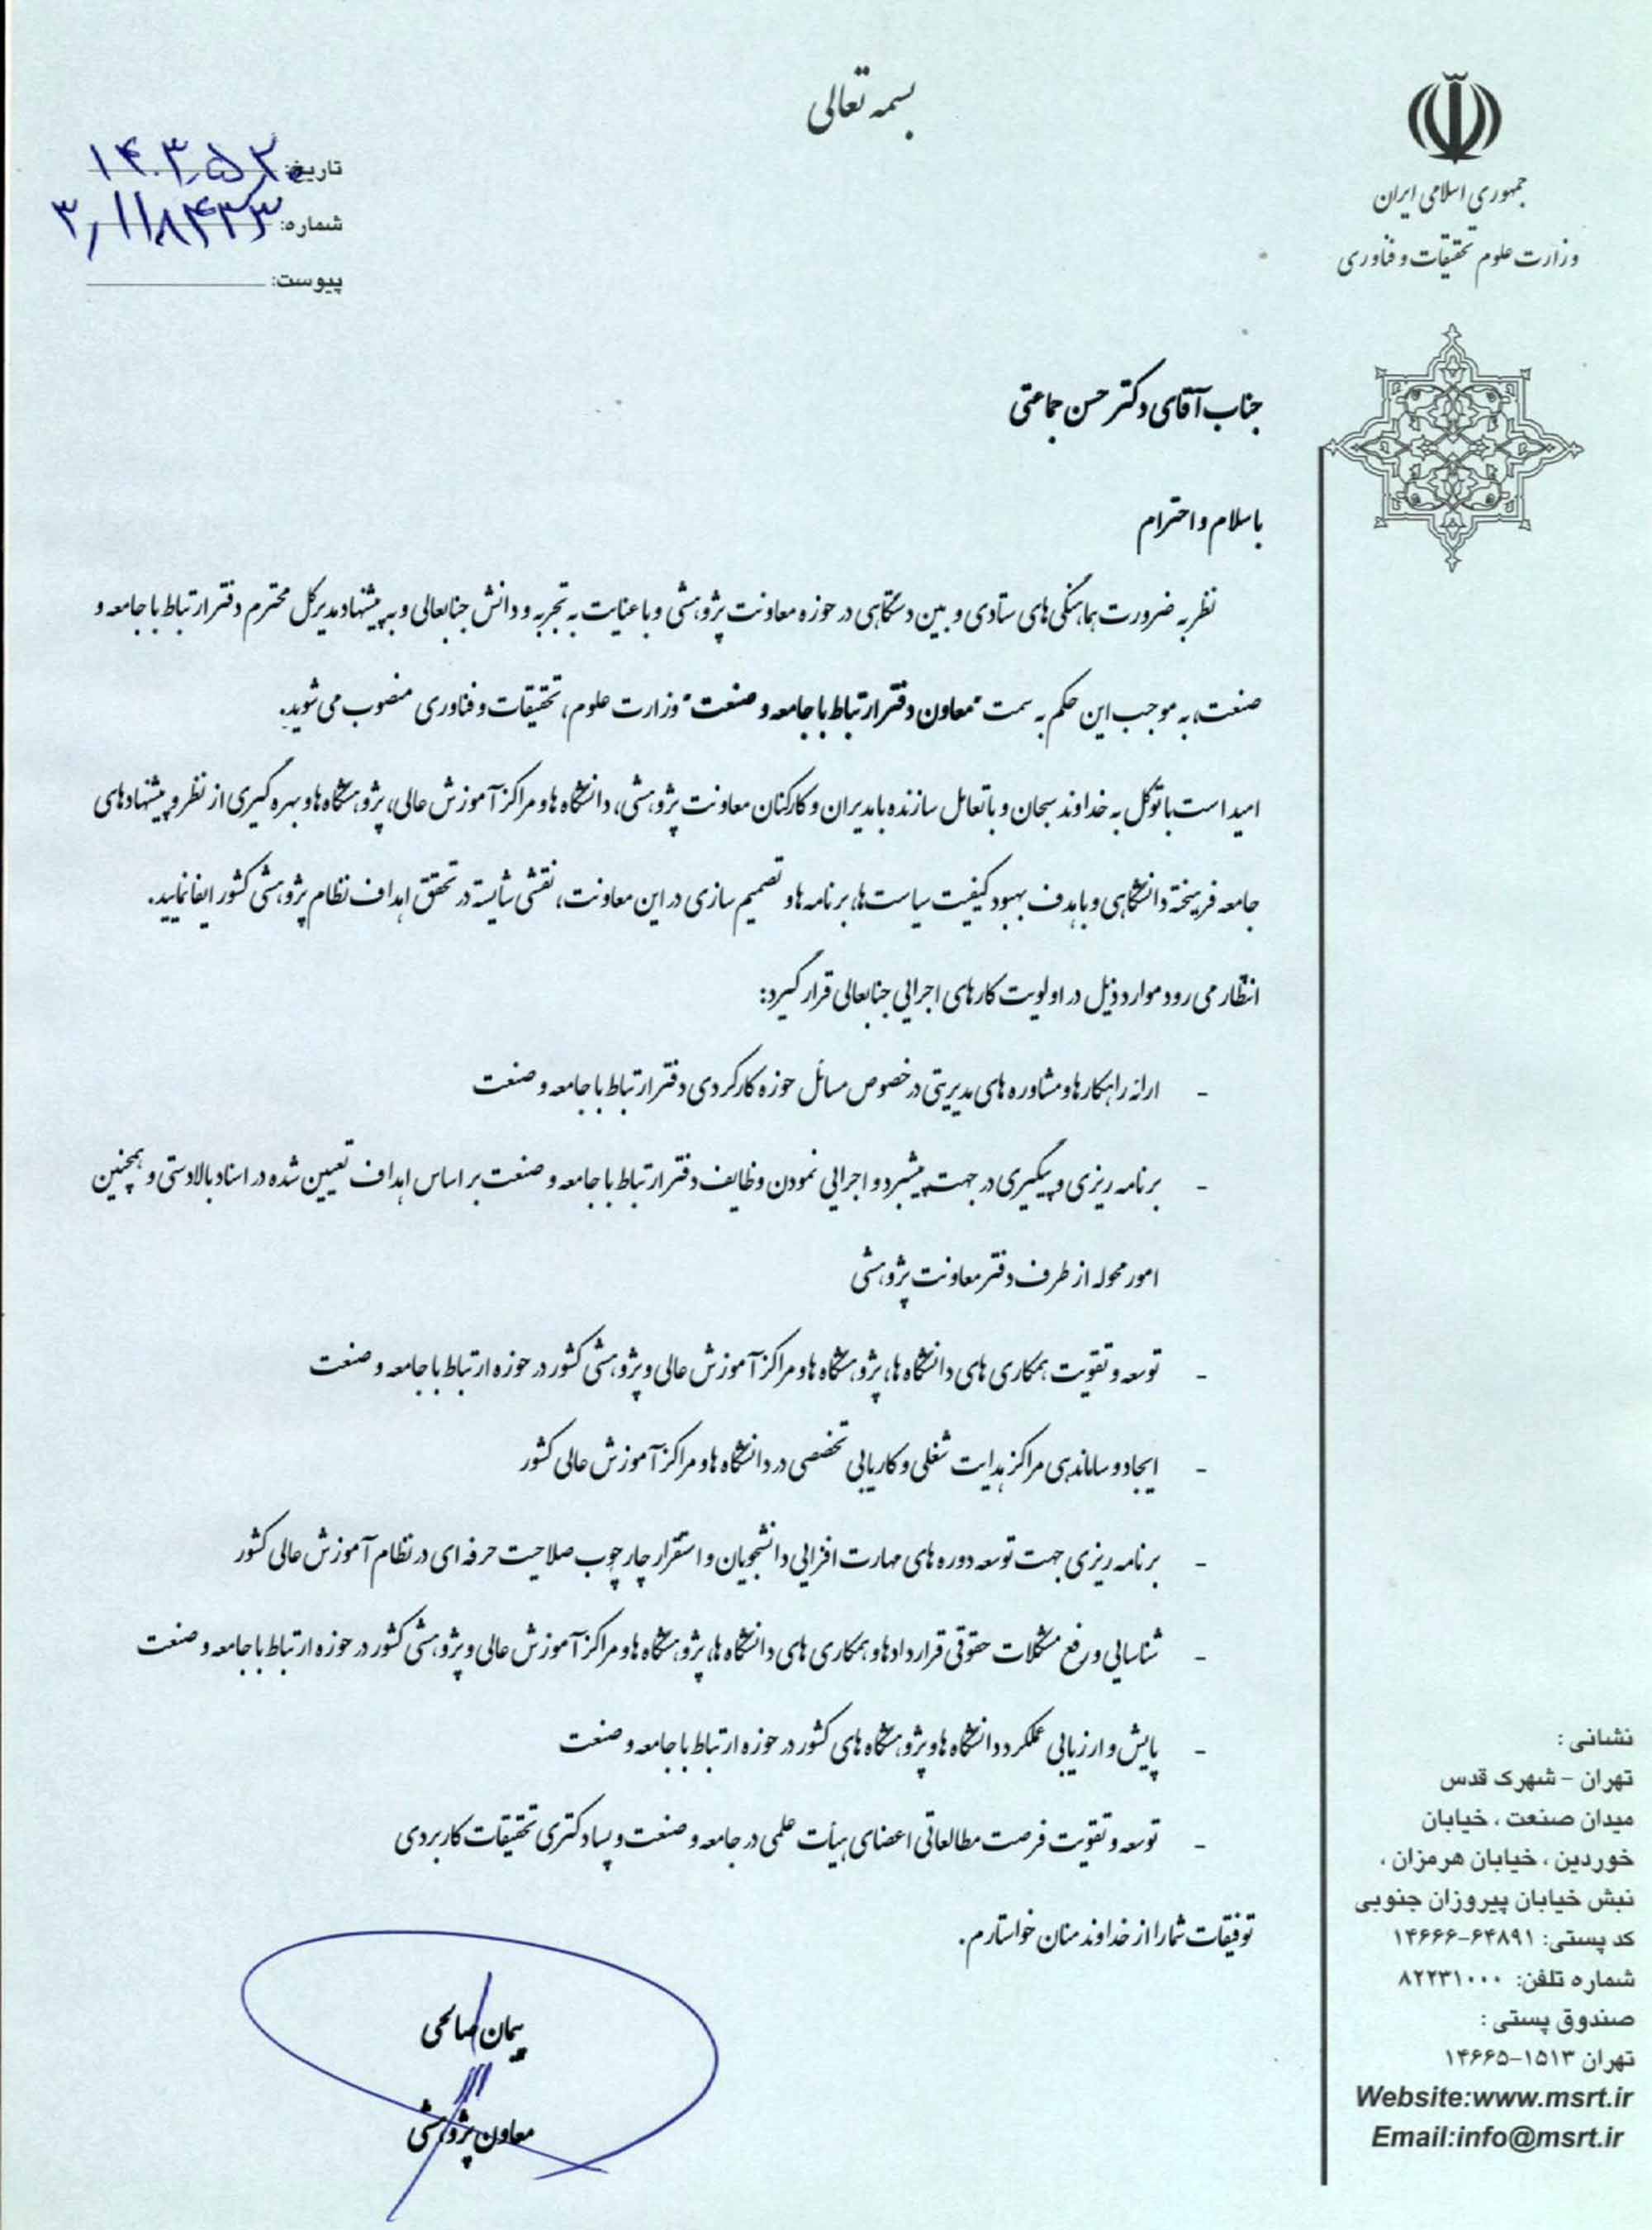 بسمه تعالی
جمهوری اسلامی ایران
وزارت علوم تحقیقات و فناوری
تاریخ:
شماره: ۳/۱۱۸۴۳۳
پیوست:
جناب آقای دکتر حسن جماعتی
با سلام و احترام
نظر به ضرورت هماهنگی های ستادی و بین دستگاهی در حوزه معاونت پژوهشی و با عنایت به تجربه و دانش جنابعالی و به پیشنهاد مدیرکل محترم دفتر ارتباط با جامعه و
صنعت، به موجب این حکم به سمت "معاون دفتر ارتباط با جامعه و صنعت" وزارت علوم، تحقیقات و فناوری منصوب می شوید.
امید است با توکل به خداوند سبحان و با تعامل سازنده با مدیران و کارکنان معاونت پژوهشی، دانشگاه ها و مراکز آموزش عالی، پژوهشگاه ها و بهره گیری از نظر و پیشنهادهای
جامعه فرهیخته دانشگاهی و با هدف بهبود کیفیت سیاست ها، برنامه ها و تصمیم سازی در این معاونت، نقشی شایسته در تحقق اهداف نظام پژوهشی کشور ایفا نمایید.
انتظار می رود موارد ذیل در اولویت کارهای اجرایی جنابعالی قرار گیرد:
- ارائه راهکارها و مشاوره های مدیریتی در خصوص مسائل حوزه کارکردی دفتر ارتباط با جامعه و صنعت
- برنامه ریزی و پیگیری در جهت پیشبرد و اجرایی نمودن وظایف دفتر ارتباط با جامعه و صنعت بر اساس اهداف تعیین شده در اسناد بالادستی و همچنین
امور محوله از طرف دفتر معاونت پژوهشی
- توسعه و تقویت همکاری های دانشگاه ها، پژوهشگاه ها و مراکز آموزش عالی و پژوهشی کشور در حوزه ارتباط با جامعه و صنعت
- ایجاد و ساماندهی مراکز هدایت شغلی و کاریابی تخصصی در دانشگاه ها و مراکز آموزش عالی کشور
- برنامه ریزی جهت توسعه دوره های مهارت افزایی دانشجویان و استقرار چارچوب صلاحیت حرفه ای در نظام آموزش عالی کشور
- شناسایی و رفع مشکلات حقوقی قراردادها و همکاری های دانشگاه ها، پژوهشگاه ها و مراکز آموزش عالی و پژوهشی کشور در حوزه ارتباط با جامعه و صنعت
- پایش و ارزیابی عملکرد دانشگاه ها و پژوهشگاه های کشور در حوزه ارتباط با جامعه و صنعت
- توسعه و تقویت فرصت مطالعاتی اعضای هیأت علمی در جامعه و صنعت و پسادکتری تحقیقات کاربردی
توفیقات شما را از خداوند منان خواستارم.
پیمان صالحی
معاون پژوهشی
نشانی :
تهران - شهرک قدس
میدان صنعت ، خیابان
خوردین ، خیابان هرمزان ،
نبش خیابان پیروزان جنوبی
کد پستی: ۶۴۸۹۱-۱۴۶۶۶
شماره تلفن: ۸۲۲۳۱۰۰۰
صندوق پستی :
تهران ۱۵۱۳-۱۴۶۶۵
Website:www.msrt.ir
Email:info@msrt.ir